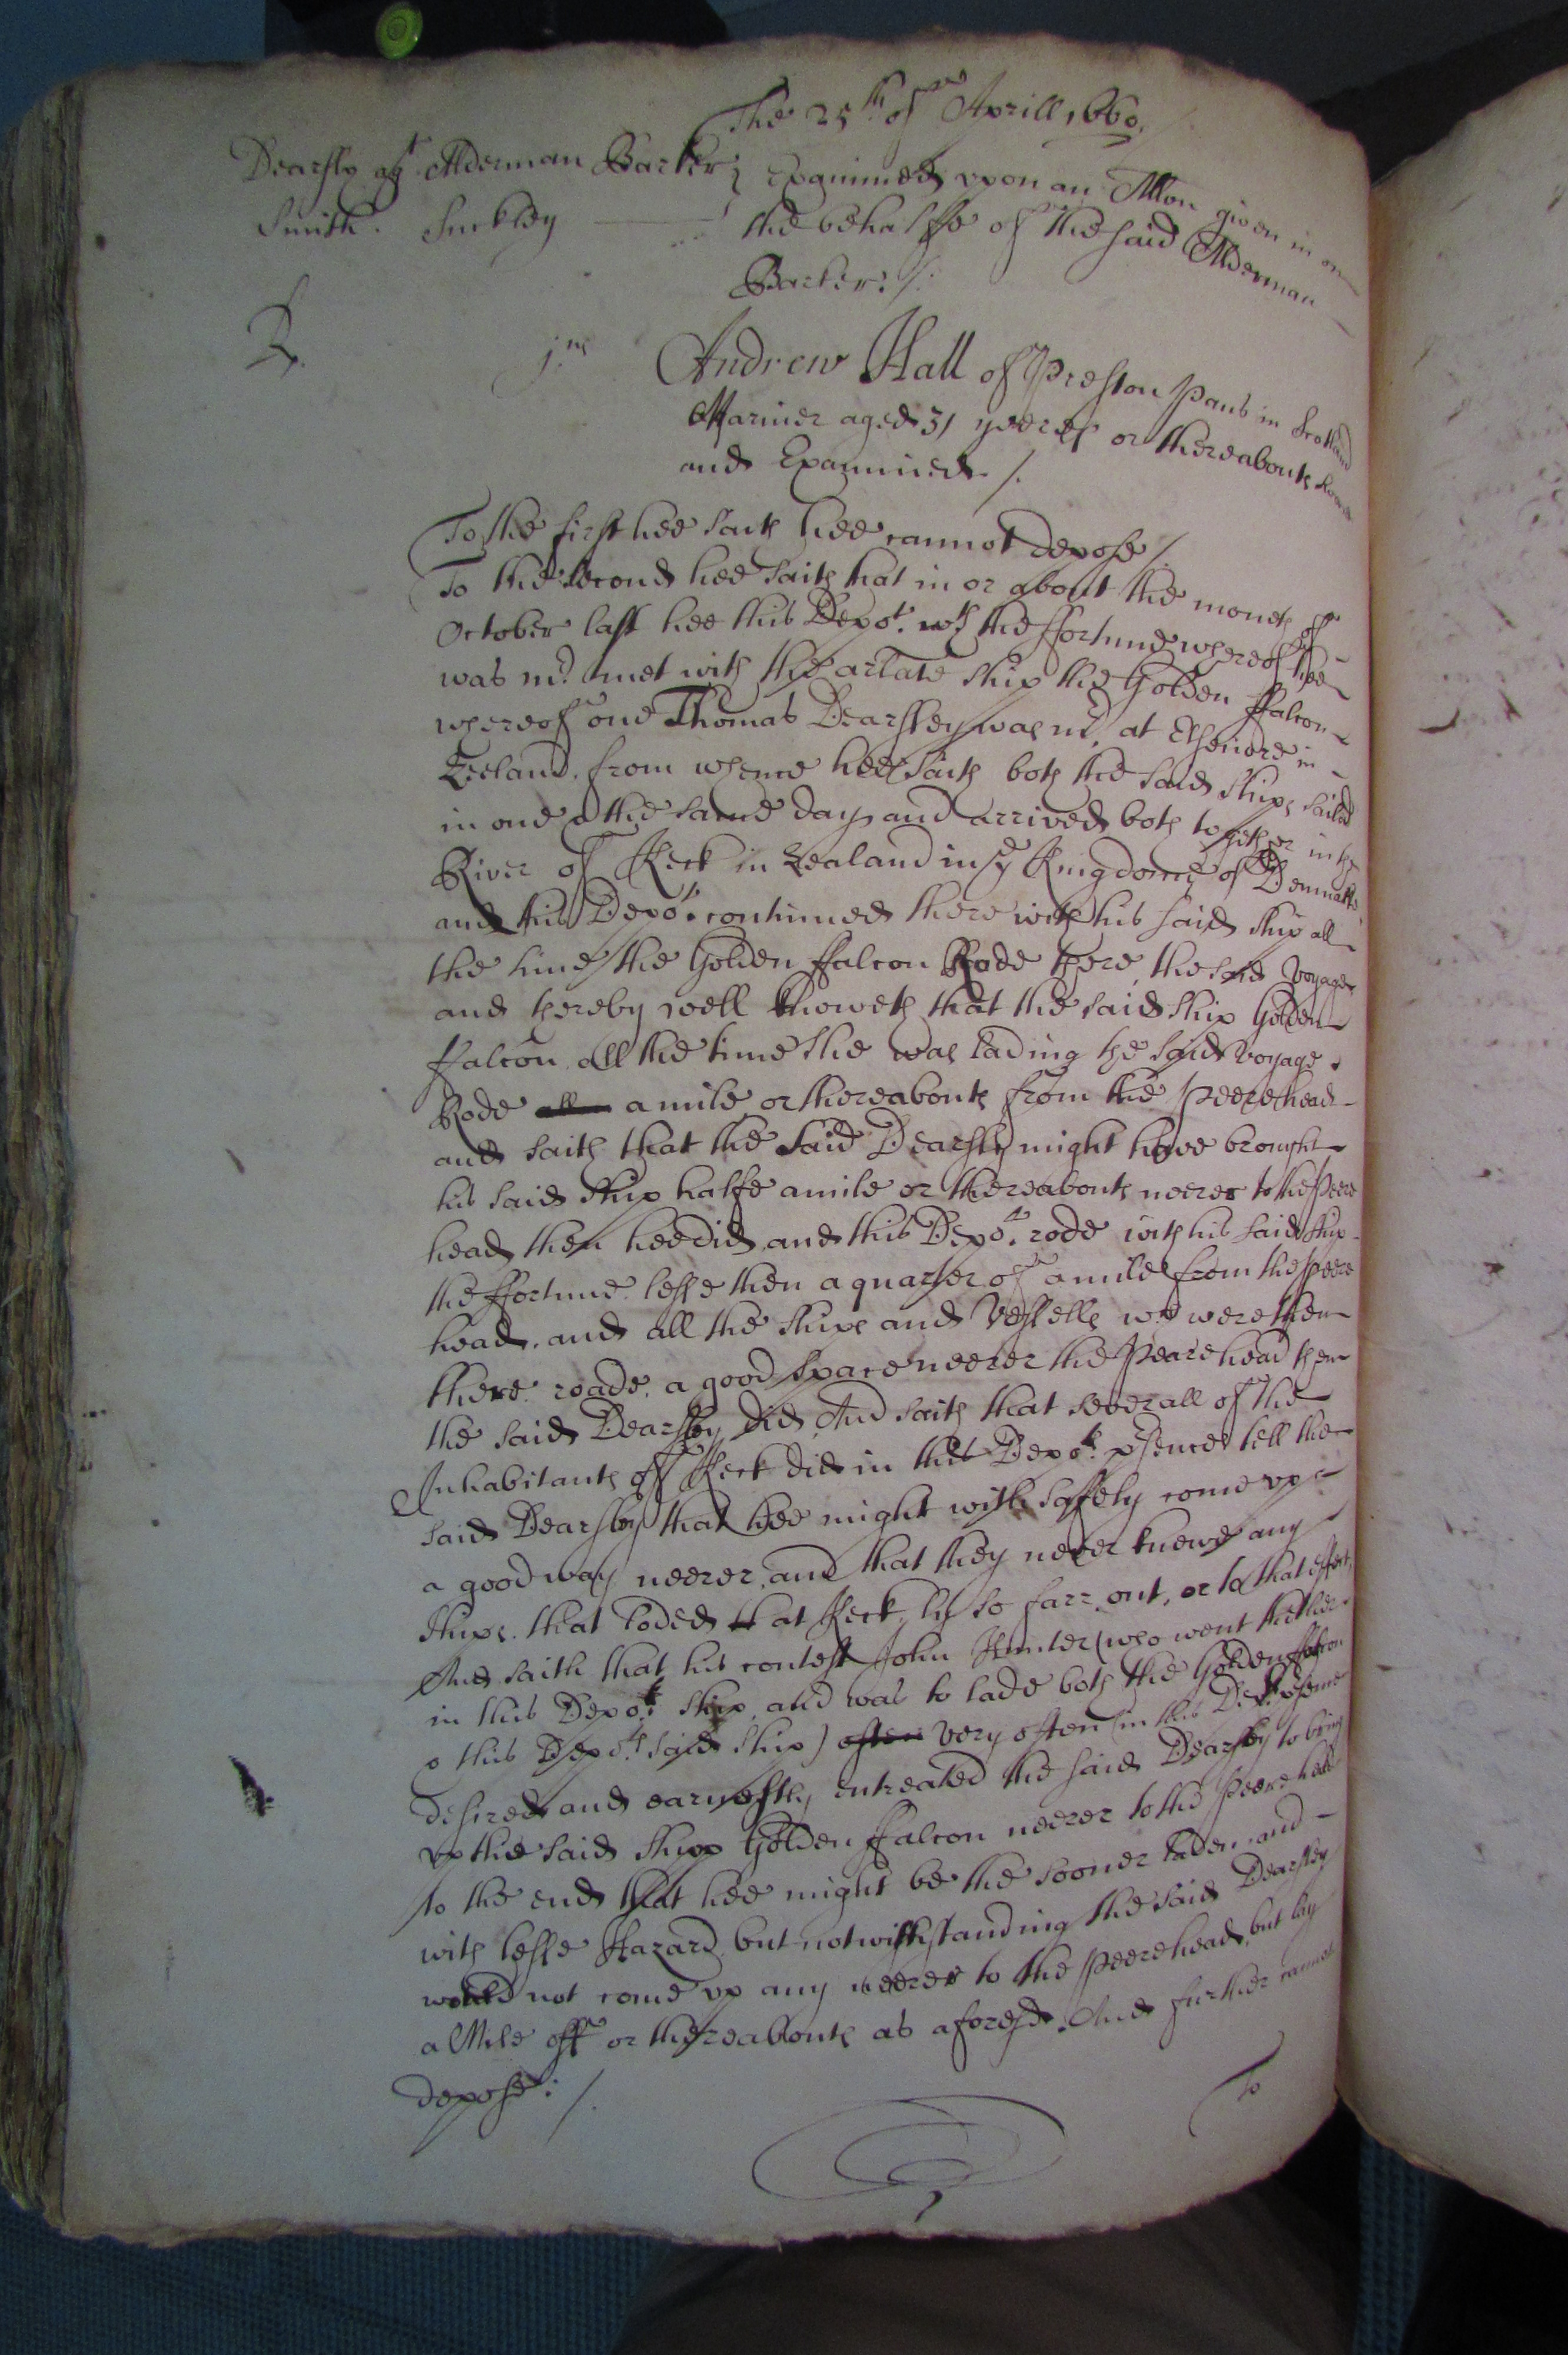 The 25th of Aprill, 1660,
Dearsly agt Alderman Barker} Examined upon an Allon given in on
Smith. Suckley the behalfe of the said Alderman
Barker: /.
jus Andrew Hall of Preston Pans in Scotland
Mariner aged 31 yeeres or thereabouts sworne
and Examined. /.
To the first hee saith hee cannot depose /
To the second hee saith that in or about the moneth of
October last hee this Depot. wth the ffortune whereof hee
was mr. met with the arlate ship the Golden ffalcon
whereof one Thomas Dearsley was mr, at Elsenore in
Zeeland, from whence hee saith both the said ships sailed
in one & the same day and arrived both together in the
River of Keck in Zealand in ye Kingdome of Denmarke
and this Depot. continued there with his said ship all
the time the Golden ffalcon Rode there, the said voyage
and thereby well knoweth that the said ship Golden
ffalcon all the time she was lading the said voyage
Rode all a mile or thereabouts from the peerehead
and saith that the said Dearsly might have brought
his said ship halfe a mile or thereabouts neerer to the Peere
head then hee did and this Depot. rode with his said ship
the ffortune lesse then a quarter of a mile from the peere
head, and all the ships and vessells wch were then
there roade, a good space neerer the Pearehead then
the said Dearsley did, And saith that severall of the
Inhabitants of Keck did in this Depots. psence tell the
said Dearsley that hee might with safety come up
a good way neerer, and that they never knewe any
ships that loded at Keck, ly so farr out, or to that effect,
And saith that his contest John Hunter (who went thither
in this Depots. ship and was to lade both the Golden ffalcon
& this Depots said ship) often very often in this Depots psence
desired and earnestly entreated the said Dearsley to bring
up the said shipp Golden ffalcon neerer to the peerehead
to the end that hee might be the sooner laden, and
with lesse Hazard, but notwithstanding the said Dearsley
would not come up any neerer to the peerehead, but lay
a Mile off or thereabouts as aforesd. And further cannot
depose: /.
To